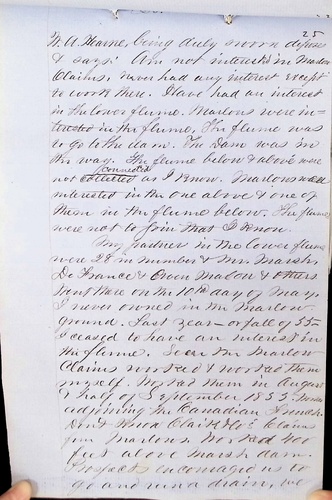 25
W. A. Hearne, being duly sworn deposes
& says: Am not interested in Marlow
Claims, never had any interest except
to work there. I have had an interest
in the lower flume. Marlows were in-
terested in the flume, The flume was
to go to the dam. The dam was in
the way. The flume below & above were
connected
not collected as I know. Marlows were
interested in the one above & one of
them in the flume below. The flumes
were not to join that I know.
My partners in the lower flume
were 28 in number & Mr. Marsh,
De France & Owen Malon & others
I never owned in the Marlow
ground. Last year — or fall of 55 —
I ceased to have an interest in
the flume. Seen the Marlow
Claims worked & worked them
myself. Worked them in August
& half of September 1855
adjoining the Canadian
Claims
from Marlows. Worked 400
feet above Marsh dam.
Prospects encouraged us to
go and run a drain, we